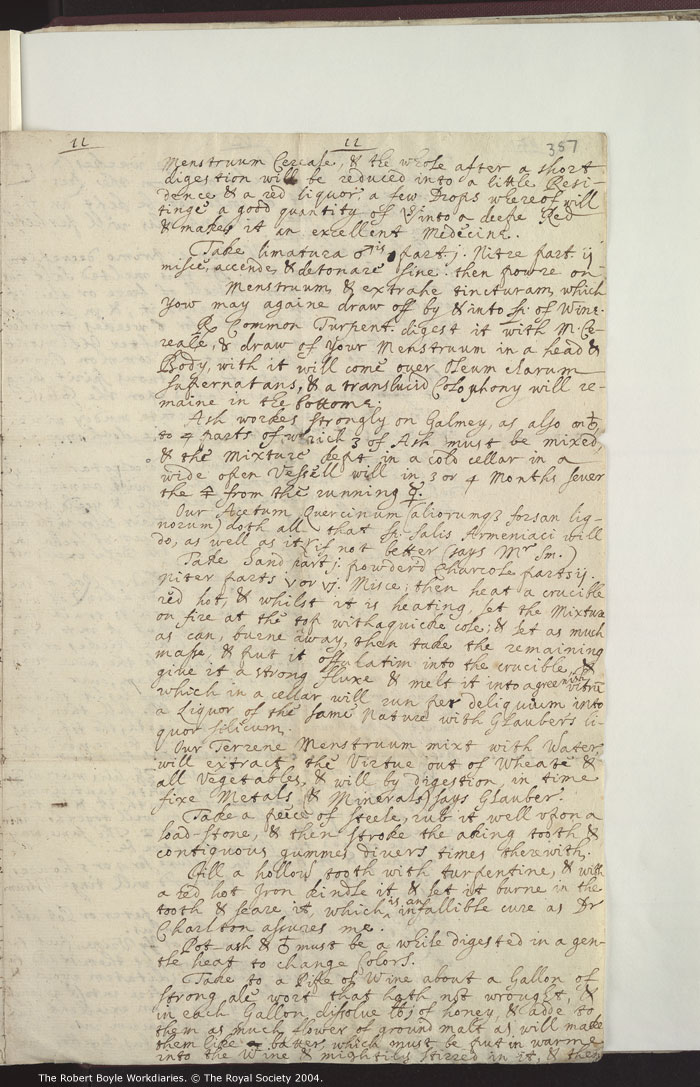 11 11 357
Menstruum Cereale, & the whole after a short
digestion will be reduced into a little Resi-
dence & a red liquor, a few Drops whereof will
tinge a good quantity of into a deepe Red
& makes it an excellent Medecine.
Take limatura ♂tis part j. Nitre part ij
misce, accende, & detonare sine: then powre on
Menstruum, & extrahe tincturam, which
yow may againe draw off by & into sp: of Wine.
℞ Common Turpent: digest it with M: Ce-
reale, & draw of your Menstruum in a head &
Body, with it will come over Oleum clarum
supernatans, & a translucid Colophony will re-
maine in the bottome.
Ash workes strongly on Galmey, as also on ♄,
to 4 parts of which 3 of Ash must be mixed,
& the mixture kept in a cold cellar in a
wide open Vessell will in 3 or 4 Months sever
the from the running ☿.
Our Acetum Quercinum (aliorumqꝫ forsan lig-
norum) doth all that sp: Salis Armeniaci will
do, as well as it (if not better (says Mr Sm.)
Take Sand part j. powderd Charcole parts ij.
Niter parts v or vj. Misce; then heat a crucible
red hot, & whilst it is heating, set the Mixture
on fire at the top with a quicke cole; & let as much
as can, burne away, then take the remaining
masse, & put it offulatim into the crucible, &
give it a strong fluxe & melt it into a greenish vitrū
which in a cellar will run per deliquium into
a Liquor of the same Nature with Glaubers li-
quor silicum.
Our Terrene Menstruum mixt with Water,
will extract the Virtue out of Wheate &
all Vegetables, & will by digestion in time
fixe Metals (& Minerals) says Glauber.
Take a peice of Steele, rub it well upon a
load-stone, & then stroke the aking tooth &
contiguous gummes divers times therewith.
Fill a hollow tooth with turpentine, & with
a red hot Iron kindle it & let it burne in the
tooth & seare it, which is an infallible cure as Dr
Charlton assures me.
Pot-ash & must be a while digested in a gen-
tle heat to change Colors.
Take to a Pipe of Wine about a Gallon of
strong ale wort that hath not wrought, &
in each Gallon dissolve ℔j of honey, & adde to
them as much flower of ground malt as will make
them like batter, which must be put in warme
into the Wine & mightily stirred in it, & then
The Robert Boyle Workdiaries. © The Royal Society 2004.